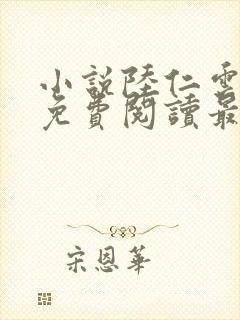 小說陸仁雲
免費閱讀最
宋恩華